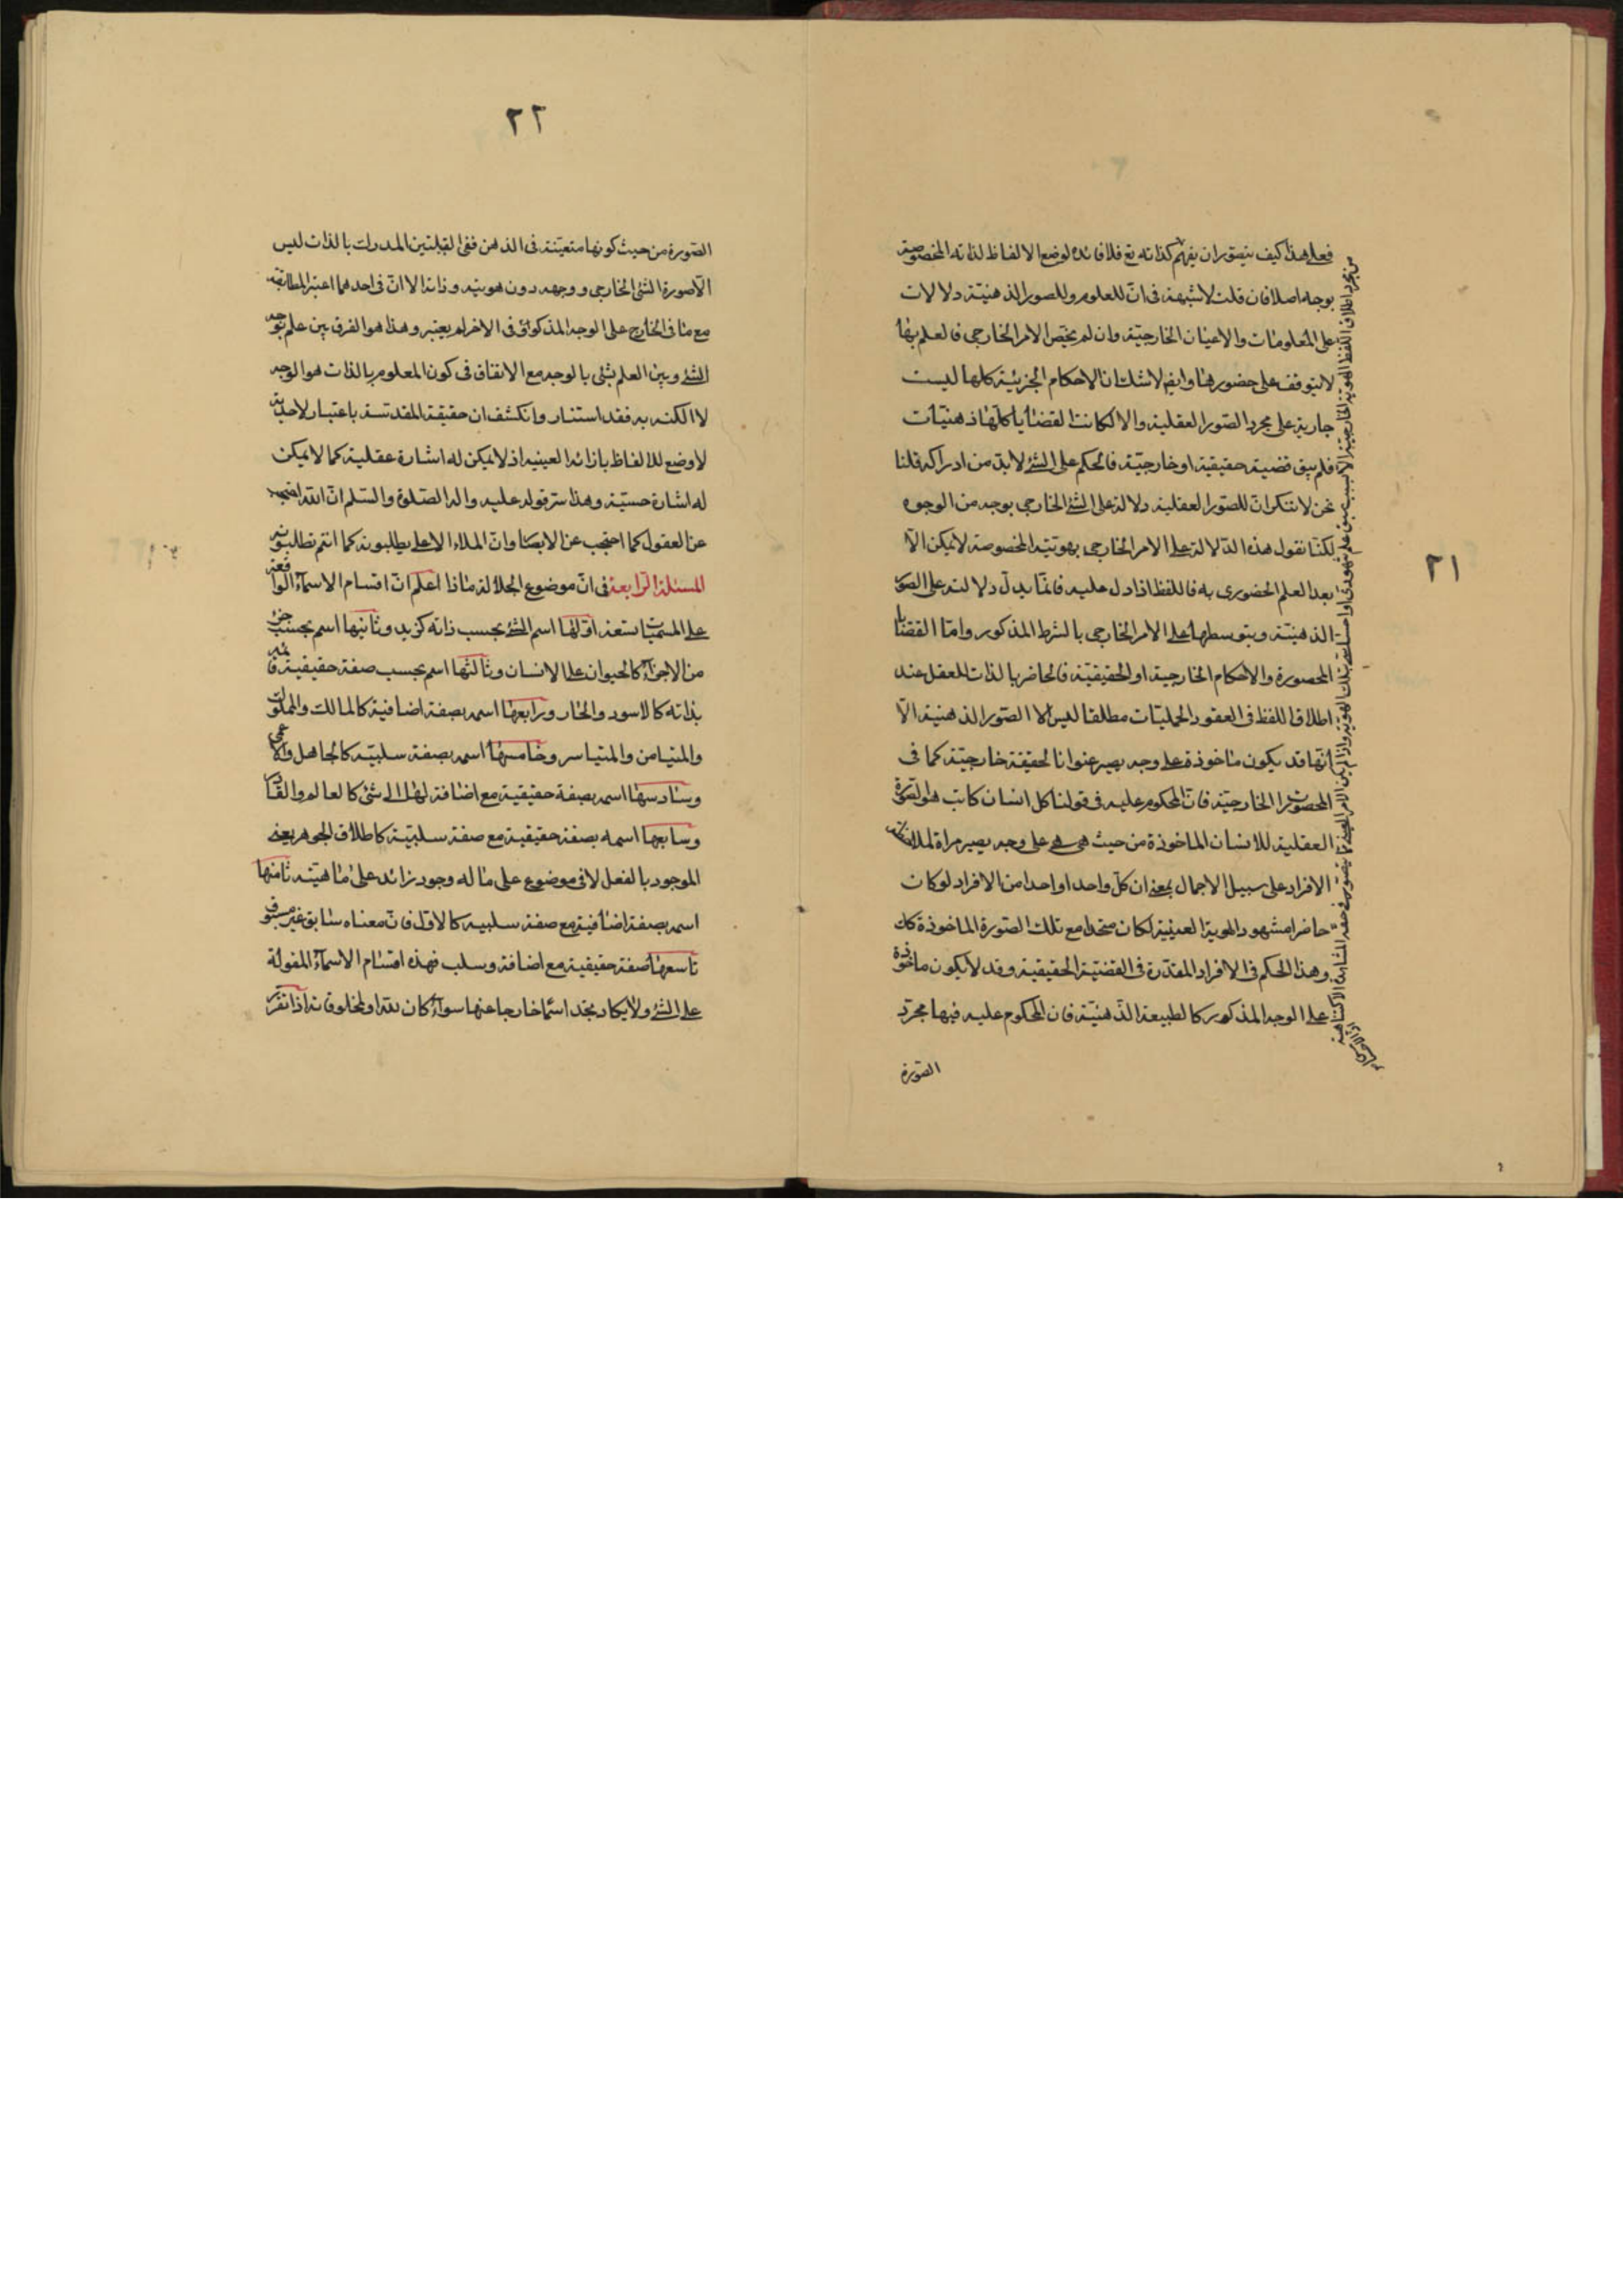 ٢١
فعلى هذا كيف يتصور ان يفهم كذاته تع فلا فائدة لوضع الالفاظ لذاته المخصوصة
بوجه اصلا فان قلت لا شبهة فى انّ للعلوم وللصور الذهنيّة دلالات
على المعلومات والاعيان الخارجيّة وان لم يختص الامر الخارجى فالعلم بها
لا يتوقف على حضورها وايضا لا شك ان الاحكام الجزئية كلها ليست
جارية على مجرد الصور العقلية والا لكانت القضايا كلّها ذهنيّات
فلم يبق قضية حقيقية او خارجيّة فالحكم على الشئ لابد من ادراكه قلنا
نحن لا ننكر انّ للصور العقلية دلالة على الشئ الخارجى بوجه من الوجوه
لكنّا نقول هذه الدّلالة على الامر الخارجى بهويّته المخصوصة لا يمكن الّا
بعد العلم الحضورى به فاللفظ اذا دل عليه فانّما يدلّ دلالته على الصور
الذهنيّة وبتوسطها على الامر الخارجى بالشرط المذكور وامّا القضايا
المحصورة والاحكام الخارجية او الحقيقيّة فالحاضر بالذات للعقل عند
اطلاق اللفظ فى العقود الحمليّات مطلقا ليس الا الصور الذهنية الّا
انّها قد يكون ماخوذة على وجه يصير عنوانا لحقيقة خارجيّة كما فى
المحصورات الخارجيّة فانّ المحكوم عليه فى قولنا كل انسان كاتب هو الصورة
العقلية للانسان الماخوذة من حيث هى هى على وجه يصير مراة لملاحظة
الافراد على سبيل الاجمال بمعنى ان كلّ واحد او احدا من الافراد لو كان
حاضرا مشهود الهوية العينية لكان متحدا مع تلك الصورة الماخوذة كك
وهذا الحكم فى الافراد المقدّرة فى القضيّة الحقيقية وقد لا يكون ماخوذة
على الوجه المذكور كالطبيعة الذّهنيّة فان المحكوم عليه فيها مجرّد
الصورة
من مجرد اطلاق اللفظ الهوية الخارجيّة الا بسبب سبق علم شهودى او احساسى بتلك الهوية واذا لم يكن الامر
٢٢
الصّورة من حيث كونها متعيّنة فى الذهن ففى القبيلتين المدرك بالذات ليس
الّا صورة الشئ الخارجى ووجهه دون هويته وذاته الا انّ فى احدهما اعتبر المطابقة
مع ما فى الخارج على الوجه المذكور وفى الاخر لم يعتبر وهذا هو الفرق بين علم بوجه
الشئ وبين العلم بشئ بالوجه مع الاتفاق فى كون المعلوم بالذات هو الوجه
لا الكنه به فقد استنار وانكشف ان حقيقة المقدسة باعتبار الاحدية
لا وضع للالفاظ بازائه العينيه اذ لا يمكن له اشارة عقلية كما لا يمكن
له اشارة حسيّة وهذا سر قوله عليه واله الصّلوة والسّلم انّ الله احتجب
عن العقول كما احتجب عن الابصار وانّ الملاء الاعلى يطلبونه كما انتم تطلبونه
المسئلة الرّابعة فى انّ موضوع الجلالة ماذا اعلم انّ اقسام الاسماء الواقعة
على المسميّات تسعة اوّلها اسم الشئ بحسب ذاته كزيد وثانيها اسم بحسب جزء
من الاجزاء كالحيوان على الانسان وثالثها اسم بحسب صفة حقيقية قائمة
بذاته كالاسود والحار ورابعها اسمه بصفة اضافية كالمالك والمملوك
والمتيامن والمتياسر وخامسها اسمه بصفة سلبيّة كالجاهل والاعمى
وسادسها اسمه بصفة حقيقية مع اضافة لها الى شئ كالعالم والقادر
وسابعها اسمه بصفة حقيقية مع صفة سلبيّة كاطلاق الجوهر بمعنى
الموجود بالفعل لا فى موضوع على ما له وجود زائد على ماهيته ثامنها
اسمه بصفة اضافية مع صفة سلبية كالاول فانّ معناه سابق غير مسبوق
تاسعها صفة حقيقية مع اضافة وسلب فهذه اقسام الاسماء المقولة
على الشئ ولا يكاد تجد اسما خارجا عنها سواء كان لله او لمخلوقاته اذا تقرر